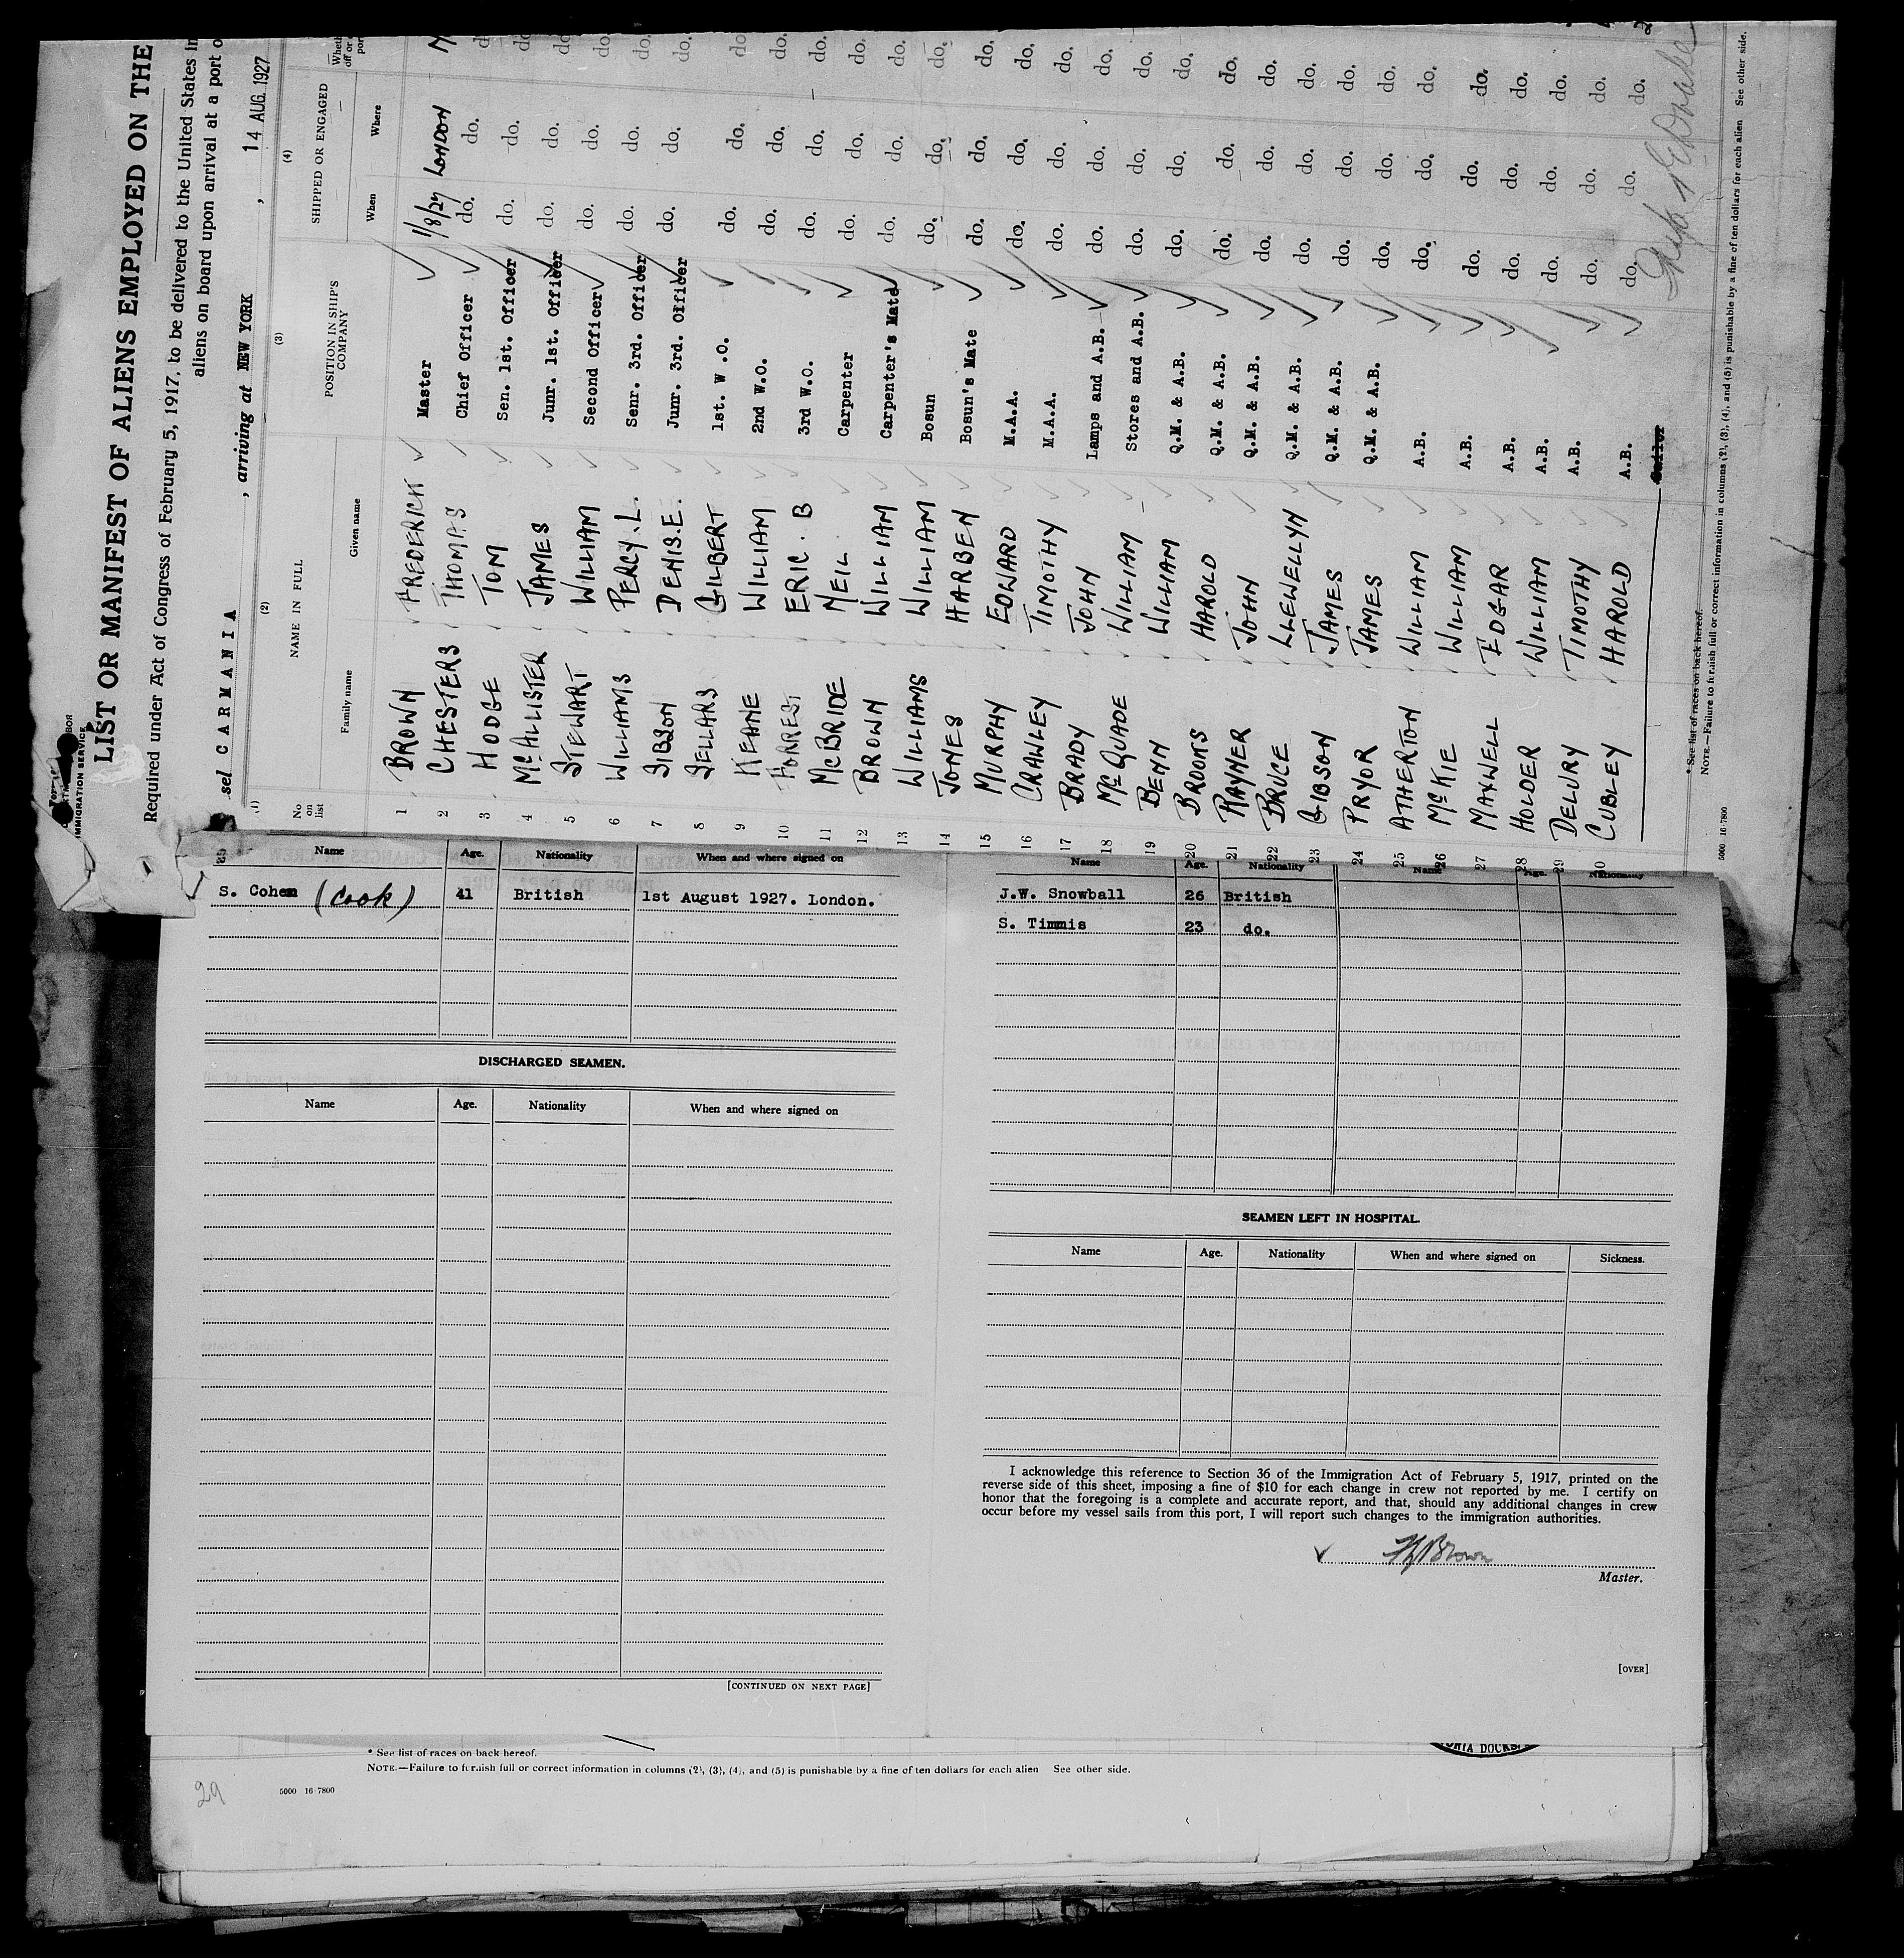 LIST OR MANIFEST OF ALIENS EMPLOYED ON THE
Required under Act of Congress of February 5, 1917, to be delivered to the United States
aliens on board upon arrival at a port
IMMIGRATION SERVICE
sel CARMANIA, arriving at NEW YORK, 14 AUG. 1927
(1) (2) (3) (4)
No on list NAME IN FULL POSITION IN SHIP'S COMPANY SHIPPED OR ENGAGED
Family name Given name When Where
1 BROWN FREDERICK Master 1/8/27 LONDON
2 CHESTERS THOMAS Chief Officer do. do. do.
3 HODGE TOM Sen. 1st. Officer do. do. do.
4 McALLISTER JAMES Junr. 1st. Officer do. do. do.
5 STEWART WILLIAM Second Officer do. do. do.
6 WILLIAMS PERCY. L. Senr. 3rd. Officer do. do. do.
7 SIBSON DENIS. E. Junr. 3rd. Officer do. do. do.
8 SELLARS GILBERT 1st. W.O. do. do. do.
9 KEANE WILLIAM 2nd W.O. do. do. do.
10 FORREST ERIC. B 3rd W.O. do. do. do.
11 McBRIDE NEIL Carpenter do. do. do.
12 BROWN WILLIAM Carpenter's Mate do. do. do.
13 WILLIAMS WILLIAM Bosun do. do. do.
14 JONES HARBEN Bosun's Mate do. do. do.
15 MURPHY EDWARD M.A.A. do. do. do.
16 CRAWLEY TIMOTHY M.A.A. do. do. do.
17 BRADY JOHN Lamps and A.B. do. do. do.
18 McQUADE WILLIAM Stores and A.B. do. do. do.
19 BENN WILLIAM Q.M. & A.B. do. do. do.
20 BROOMS HAROLD Q.M. & A.B. do. do. do.
21 RAYNER JOHN Q.M. & A.B. do. do. do.
22 BRUCE LLEWELLYN Q.M. & A.B. do. do. do.
23 GIBSON JAMES Q.M. & A.B. do. do. do.
24 PRYOR JAMES Q.M. & A.B. do. do. do.
25 ATHERTON WILLIAM A.B. do. do. do.
26 McKIE WILLIAM A.B. do. do. do.
27 MAXWELL EDGAR A.B. do. do. do.
28 HOLDER WILLIAM A.B. do. do. do.
29 DELURY TIMOTHY A.B. do. do. do.
30 CUBLEY HAROLD A.B. do. do. do.
* See list of races on back hereof.
NOTE.—Failure to furnish full or correct information in columns (2), (3), (4), and (5) is punishable by a fine of ten dollars for each alien See other side.
5000 16-7800
Name Age. Nationality When and where signed on
S. Cohen (Cook) 41 British 1st August 1927. London.
DISCHARGED SEAMEN.
Name Age. Nationality When and where signed on
[CONTINUED ON NEXT PAGE]
Name Age. Nationality Name Age. Nationality
J.W. Snowball 26 British
S. Timmis 23 do.
SEAMEN LEFT IN HOSPITAL.
Name Age. Nationality When and where signed on Sickness.
I acknowledge this reference to Section 36 of the Immigration Act of February 5, 1917, printed on the
reverse side of this sheet, imposing a fine of $10 for each change in crew not reported by me. I certify on
honor that the foregoing is a complete and accurate report, and that, should any additional changes in crew
occur before my vessel sails from this port, I will report such changes to the immigration authorities.
Brown
Master.
[OVER]
DOCKS.
* See list of races on back hereof.
NOTE.—Failure to furnish full or correct information in columns (2), (3), (4), and (5) is punishable by a fine of ten dollars for each alien See other side.
5000 16-7800
29